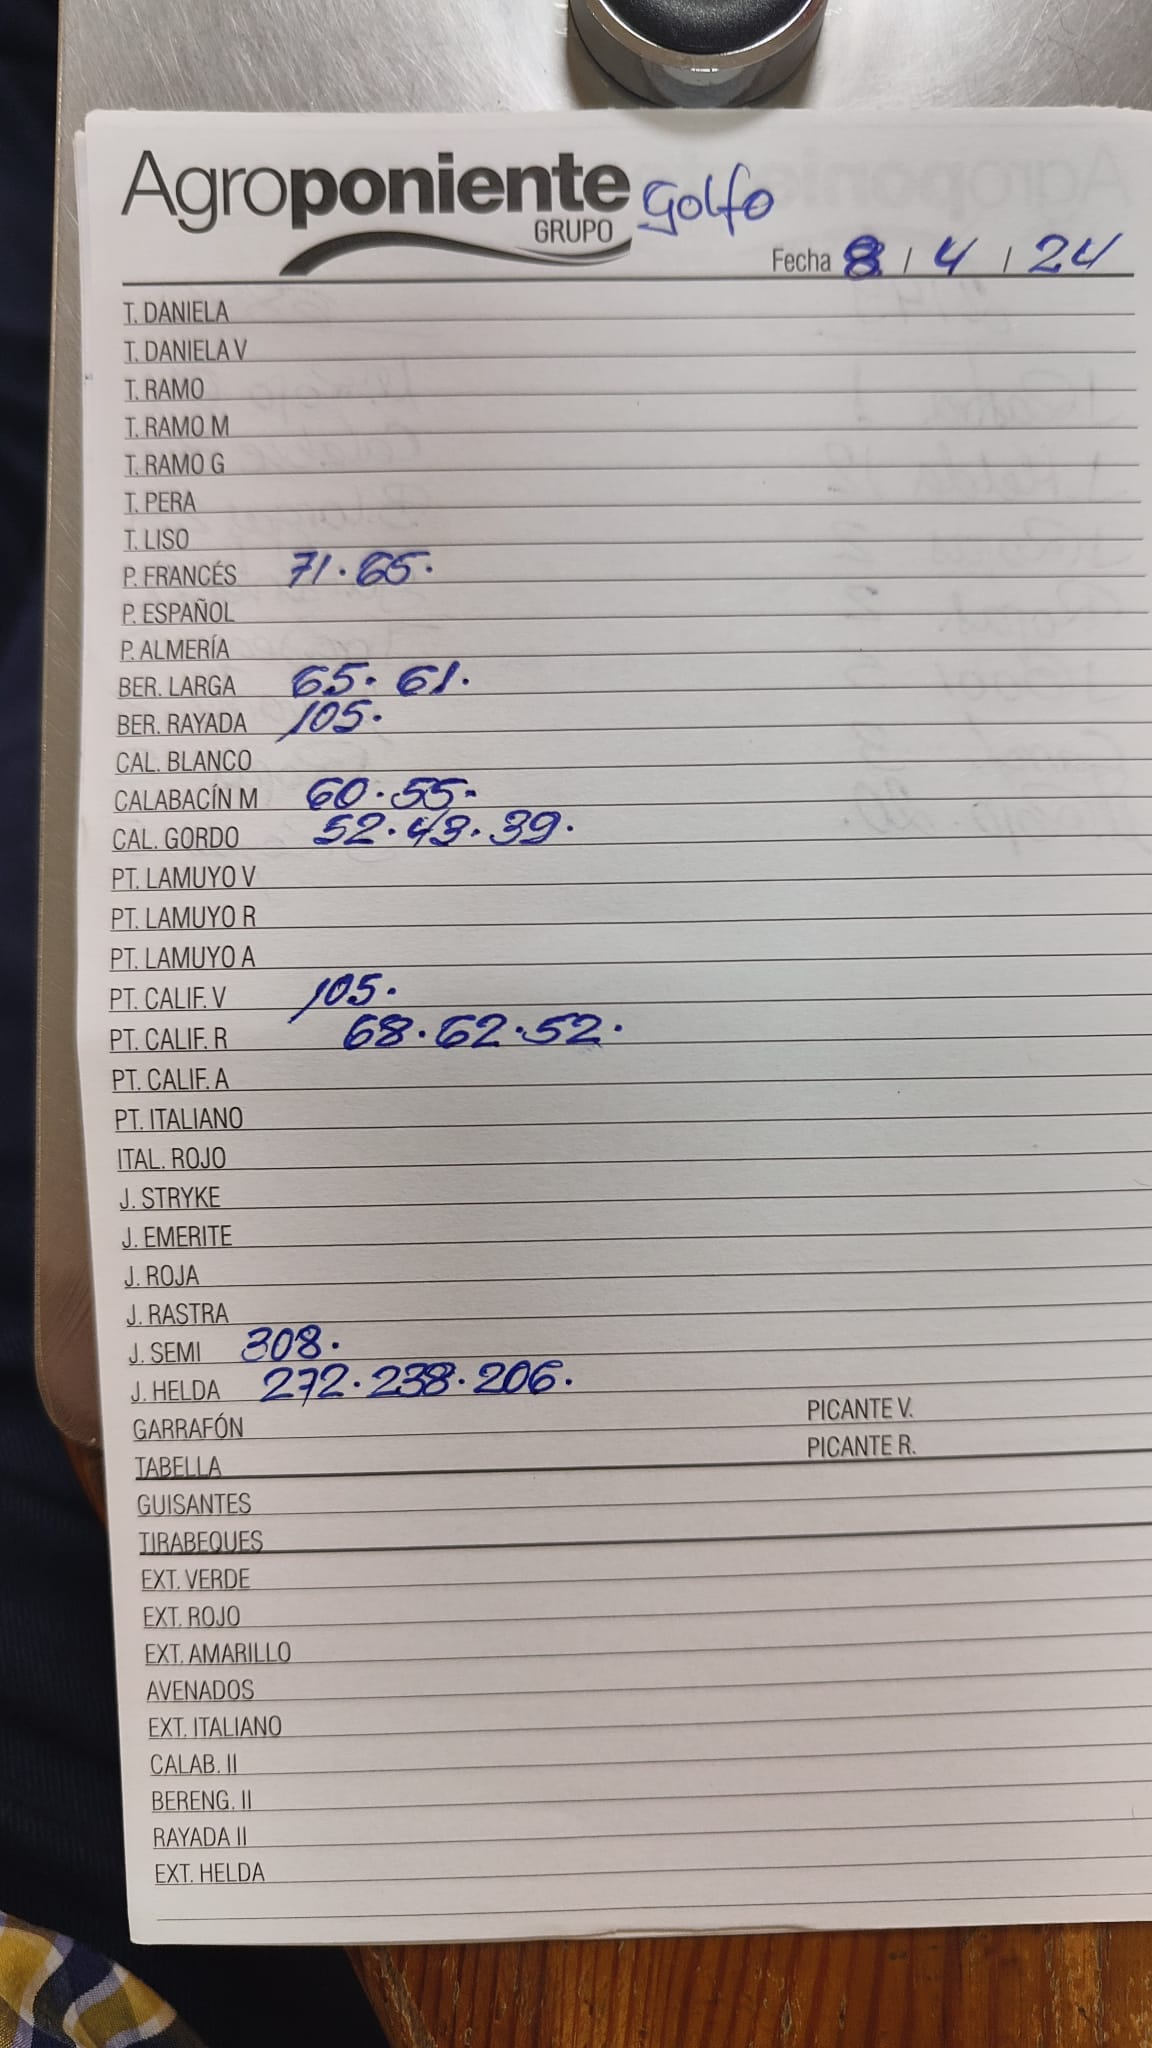 Agroponiente Golfo
GRUPO
Fecha 8 / 4 / 24
T. DANIELA
T. DANIELA V
T. RAMO
T. RAMO M
T. RAMO G
T. PERA
T. LISO
P. FRANCÉS 71 · 65 ·
P. ESPAÑOL
P. ALMERÍA
BER. LARGA 65 · 61 ·
BER. RAYADA 105 ·
CAL. BLANCO
CALABACÍN M 60 · 55 ·
CAL. GORDO 52 · 43 · 39 ·
PT. LAMUYO V
PT. LAMUYO R
PT. LAMUYO A
PT. CALIF. V 105 ·
PT. CALIF. R 68 · 62 · 52 ·
PT. CALIF. A
PT. ITALIANO
ITAL. ROJO
J. STRYKE
J. EMERITE
J. ROJA
J. RASTRA
J. SEMI 308 ·
J. HELDA 272 · 238 · 206 ·
GARRAFÓN PICANTE V.
TABELLA PICANTE R.
GUISANTES
TIRABEQUES
EXT. VERDE
EXT. ROJO
EXT. AMARILLO
AVENADOS
EXT. ITALIANO
CALAB. II
BERENG. II
RAYADA II
EXT. HELDA